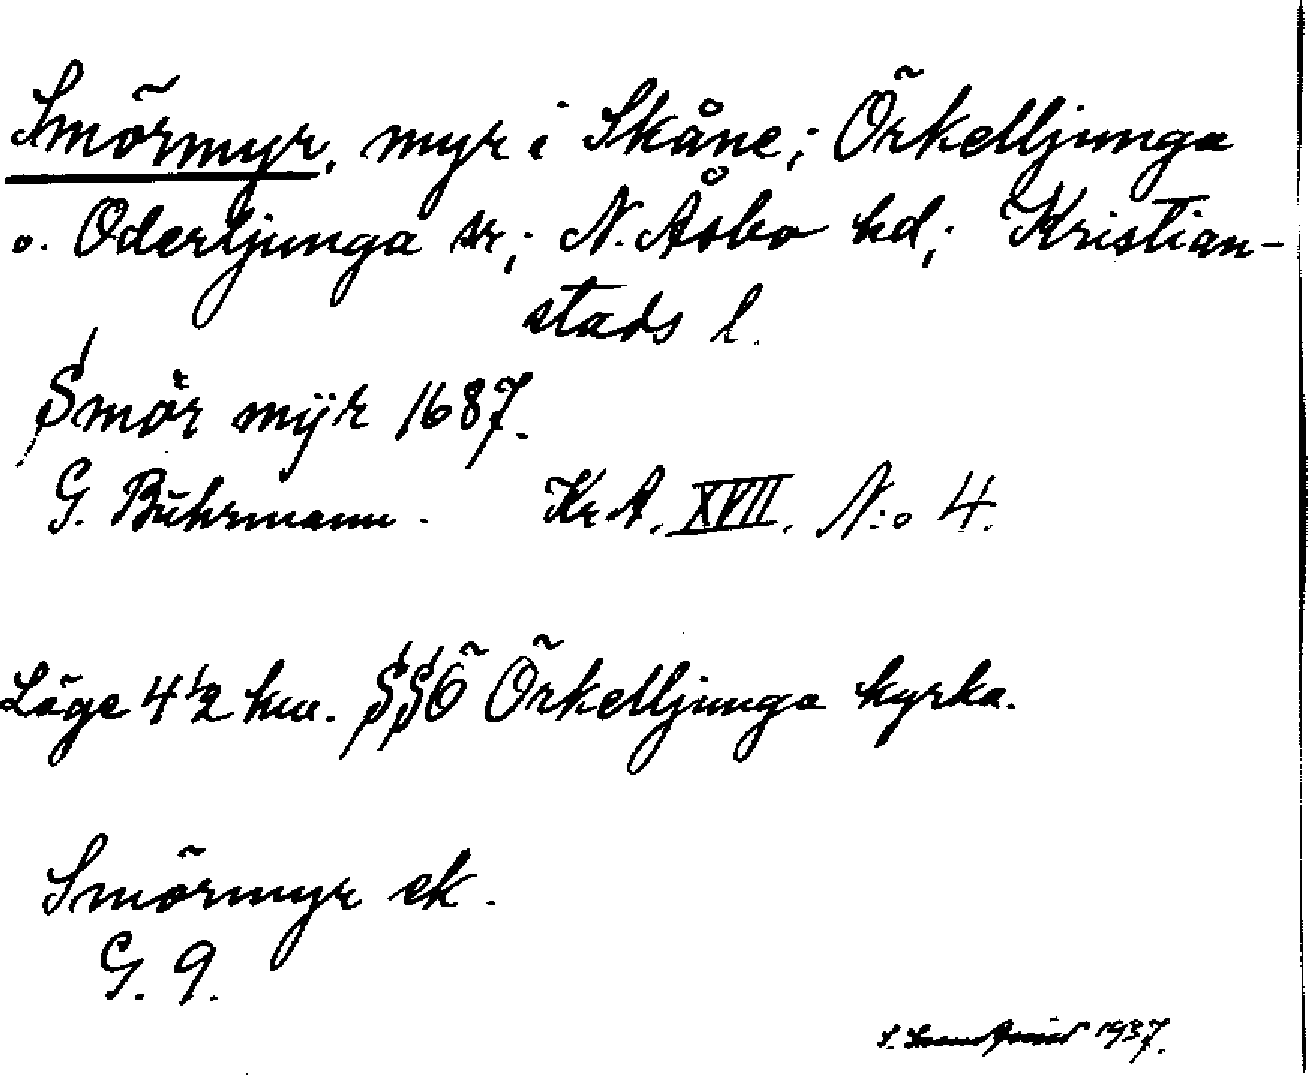 Smörmyr, myr i Skåne; Örkelljunga
o. Oderljunga sr; N. Åsbo hd; Kristian-
stads l.
Smör mÿr 1687.
G. Buhrmann. Kr. A. XVII. N:o 4.
Läge 4 1/2 km. SSÖ Örkelljunga kyrka.
Smörmyr ek.
G. 9.
1937.